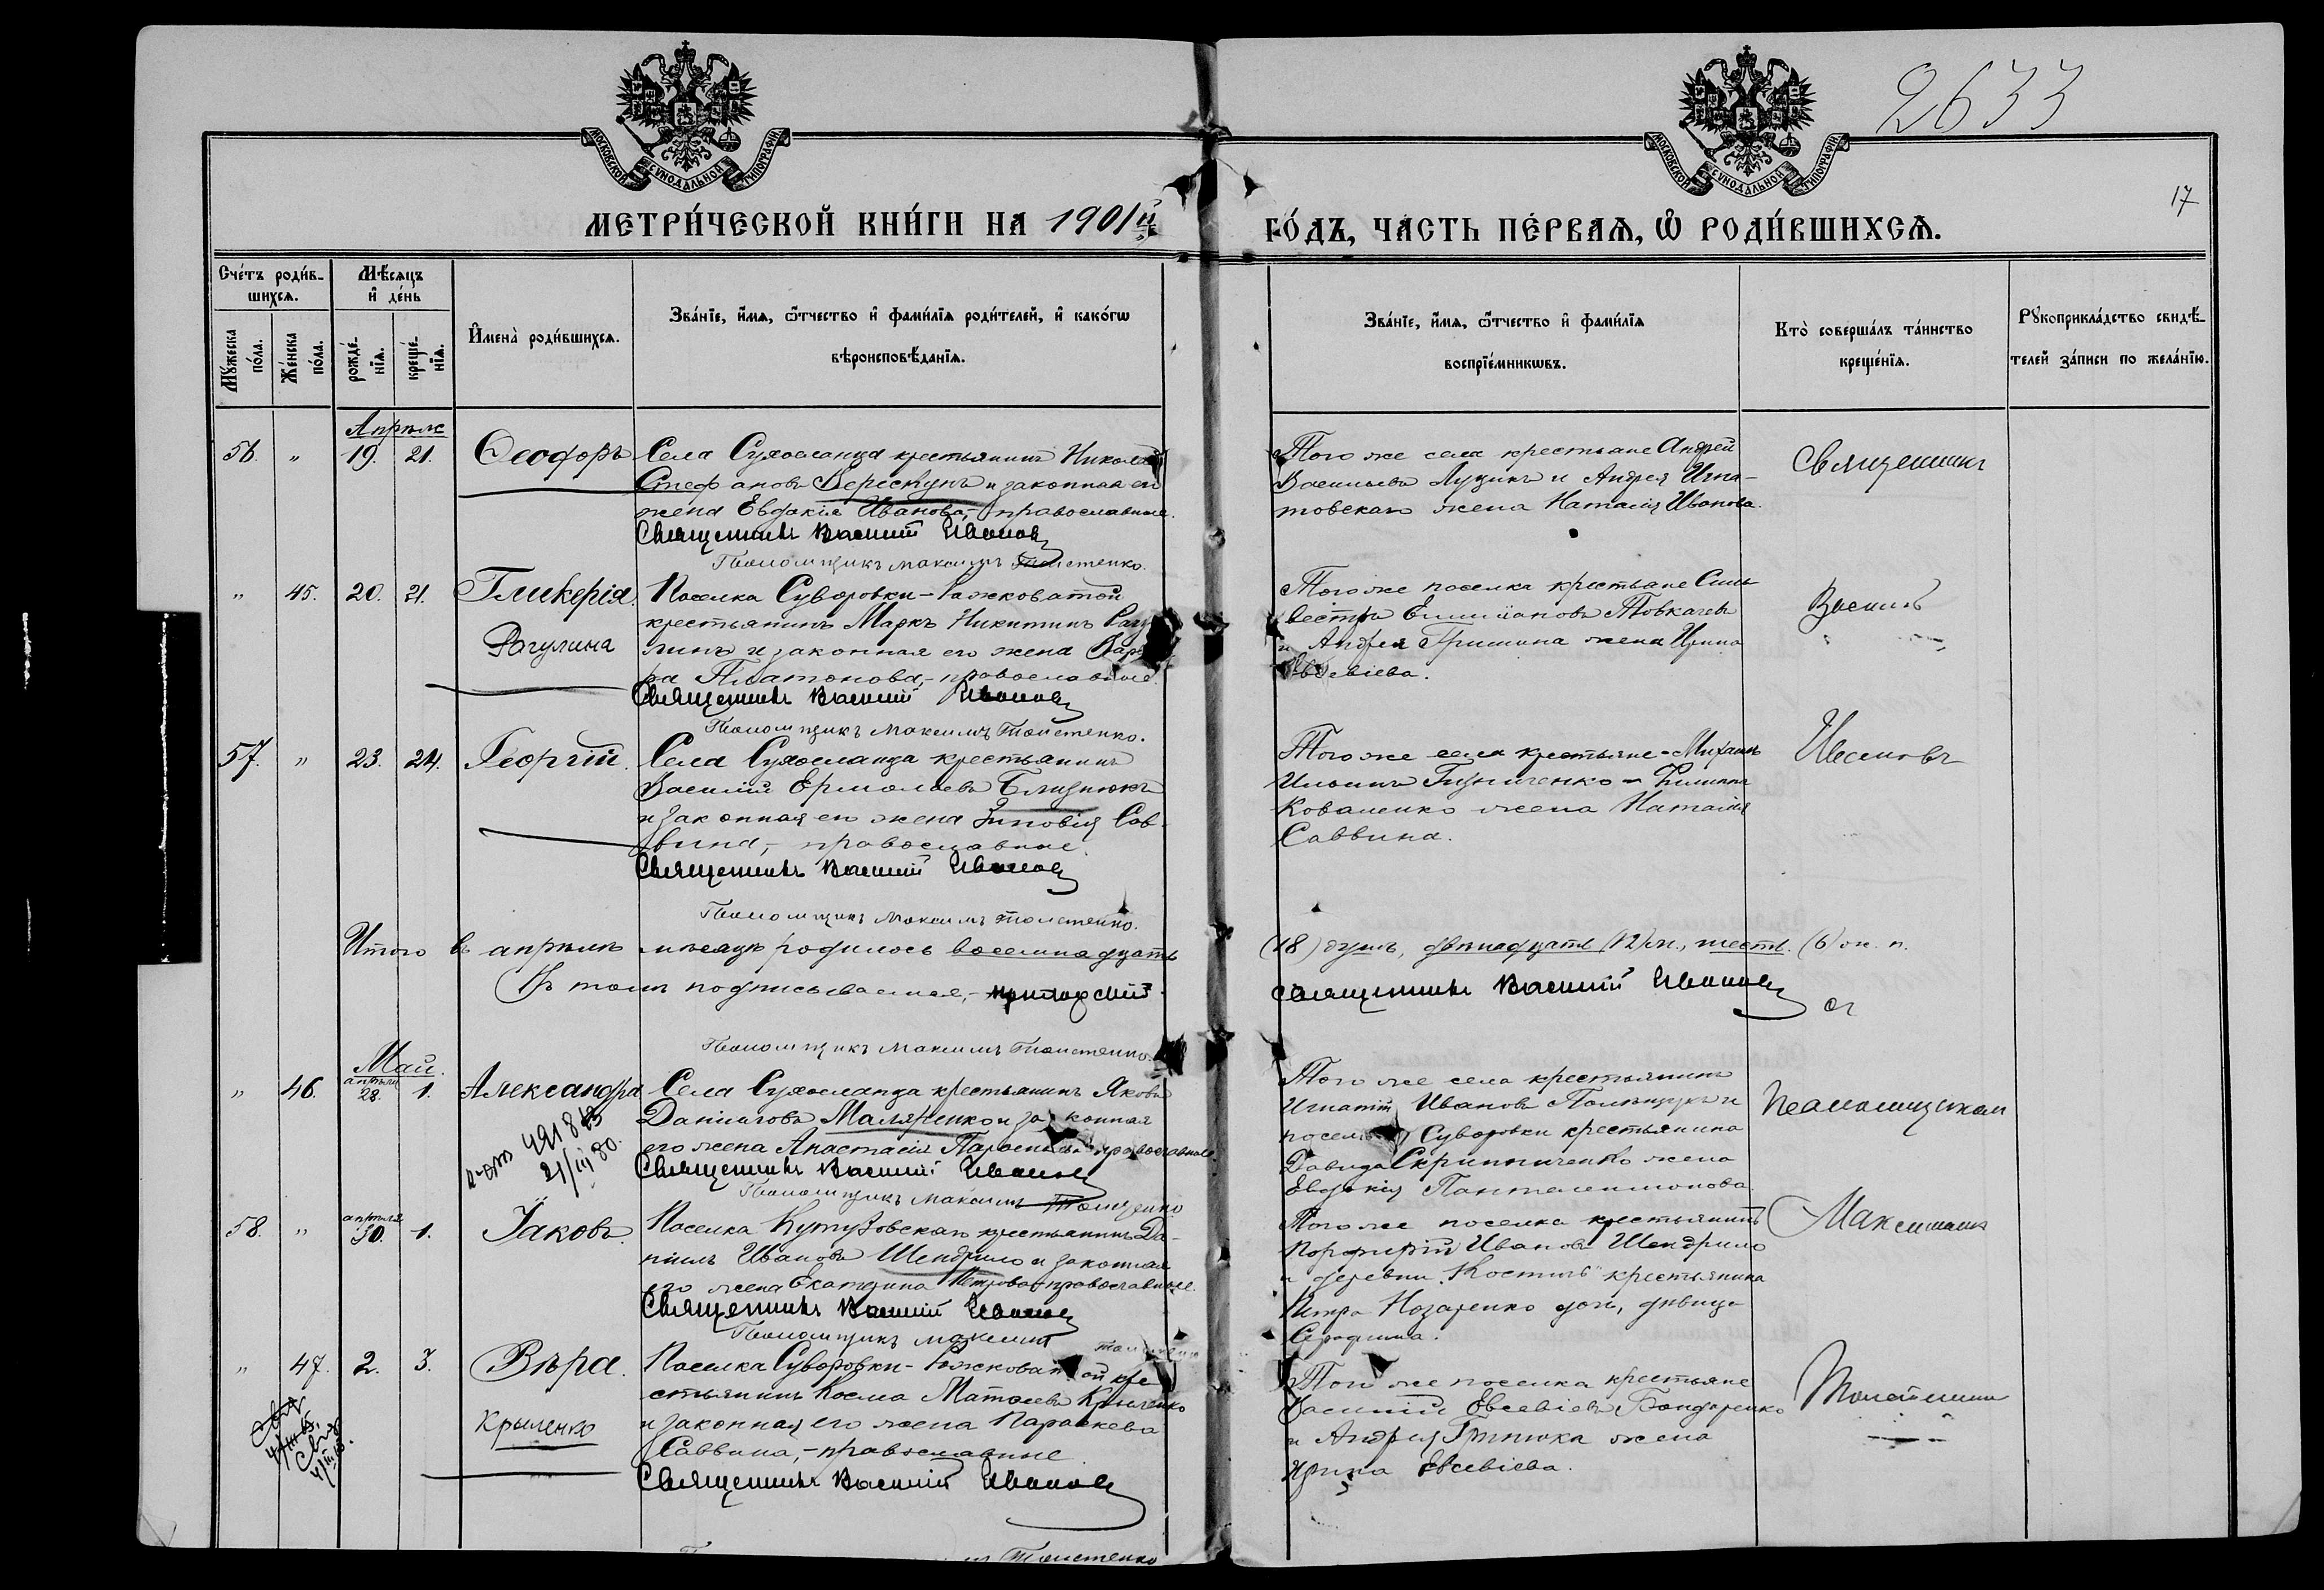 2633
17
МОСКОВСКОЙ СѴНОДАЛЬНОЙ ТИПОГРАФІИ
МОСКОВСКОЙ СѴНОДАЛЬНОЙ ТИПОГРАФІИ
МЕТРИ́ЧЕСКОЙ КНИ́ГИ НА 1901й
ГО́ДЪ, ЧА́СТЬ ПЕ́РВАѦ, Ѡ҆ РОДИ́ВШИХСѦ.
Сче́тъ роди́в-
шихсѧ.
Мѣ́сѧцъ
и҆ де́нь
Мꙋ́жеска
по́ла.
Же́нска
по́ла.
рожде́-
нїѧ.
креще́-
нїѧ.
И҆мена̀ роди́вшихсѧ.
Зва́нїе, и҆́мѧ, ѻ҆́тчество и҆ фами́лїѧ роди́телей, и҆ како́гѡ
вѣроисповѣ́данїѧ.
Зва́нїе, и҆́мѧ, ѻ҆́тчество и҆ фами́лїѧ
воспрїе́мникѡвъ.
Кто̀ соверша́лъ та́инство
креще́нїѧ.
Рꙋкоприкла́дство свидѣ́-
телей за́писи по жела́нїю.
Апрѣль
56. " 19. 21. Ѳеодоръ Села Сухоеланца крестьянинъ Николай
Стефановъ Берестунъ и законная его
жена Евдокія Иванова,- православные.
Священникъ Василий Иванов
Псаломщикъ Максимъ Толстенко.
Того же села крестьяне Андрей
Васильевъ Луцикъ и Андрея Игна-
товскаго жена Наталія Иванова.
Священникъ
" 45. 20. 21. Гликерія. Поселка Суворовки-Ражковатой
Рагулина
крестьянинъ Маркъ Никитинъ Рагу-
линъ и законная его жена Варва-
ра Платонова,- православные.
Священникъ Василий Иванов
Псаломщикъ Максимъ Толстенко.
Того же поселка крестьяне Силь-
вестръ Емилiановъ Товкачевъ
и Андрея Гришина жена Ирина
Евсевіева.
Василій
57. " 23. 24. Георгій. Села Сухоеланца крестьянинъ
Василій Ермолаевъ Близнюкъ
и законная его жена Зиновія Сав-
вина,- православные.
Священникъ Василий Иванов
Псаломщикъ Максимъ Толстенко.
Того же села крестьяне - Михаилъ
Ильинъ
Коваленко жена Наталія
Саввина.
Ивановъ
Итого въ апрѣлѣ мѣсяцѣ родилось восемнадцать
(18) душъ, двѣнадцать (12) м., шесть (6) ж. п.
Въ томъ подписываемся,-
Священникъ Василий Иванов
Псаломщикъ Максимъ Толстенко.
Май.
" 46. апрѣля 28. 1. Александра Села Сухоеланца крестьянинъ Яковъ
21/III 80.
Даниловъ Маляренко и законная
его жена Анастасія православные
Священникъ Василий Иванов
Псаломщикъ Максимъ Толстенко
Того же села крестьянинъ
Игнатій Ивановъ и
поселка Суворовки крестьянина
Давида Скрипниченко жена
Евдокія Пантелеимонова
съ
псаломщикомъ
58. " апрѣля 30. 1. Іаковъ. Поселка Кутузовскаго крестьянинъ Да-
ніилъ Ивановъ Шендрило и законная
его жена Екатерина Петрова-православные.
Священникъ Василий Иванов
Псаломщикъ Максимъ Толстенко
Того же поселка крестьянинъ
Порфирій Ивановъ Шендрило
и деревни „Костиль" крестьянина
Петра Назаренко дочь, дѣвица
Серафима.
Максимомъ
" 47. 2. 3. Вѣра. Поселка Суворовки-Ражковатой кре-
Крыленко
стьянинъ Косма Матѳеевъ Крыленко
и законная его жена Параскева
Саввина,- православные.
Священникъ Василий Иванов
Толстенко
Того же поселка крестьяне
Василій Евсевіевъ Бондаренко
и Андрея Гринюка жена
Ирина Евсевіева.
Толстенко